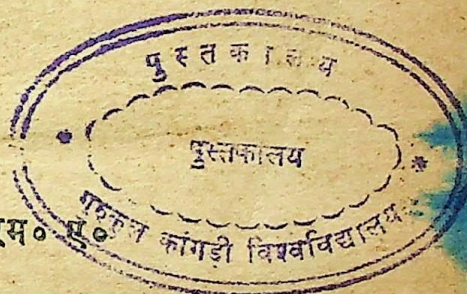 पुस्तकालय
पुस्तकालय
गुरुकुल कांगड़ी विश्वविद्यालय
एम० ए०